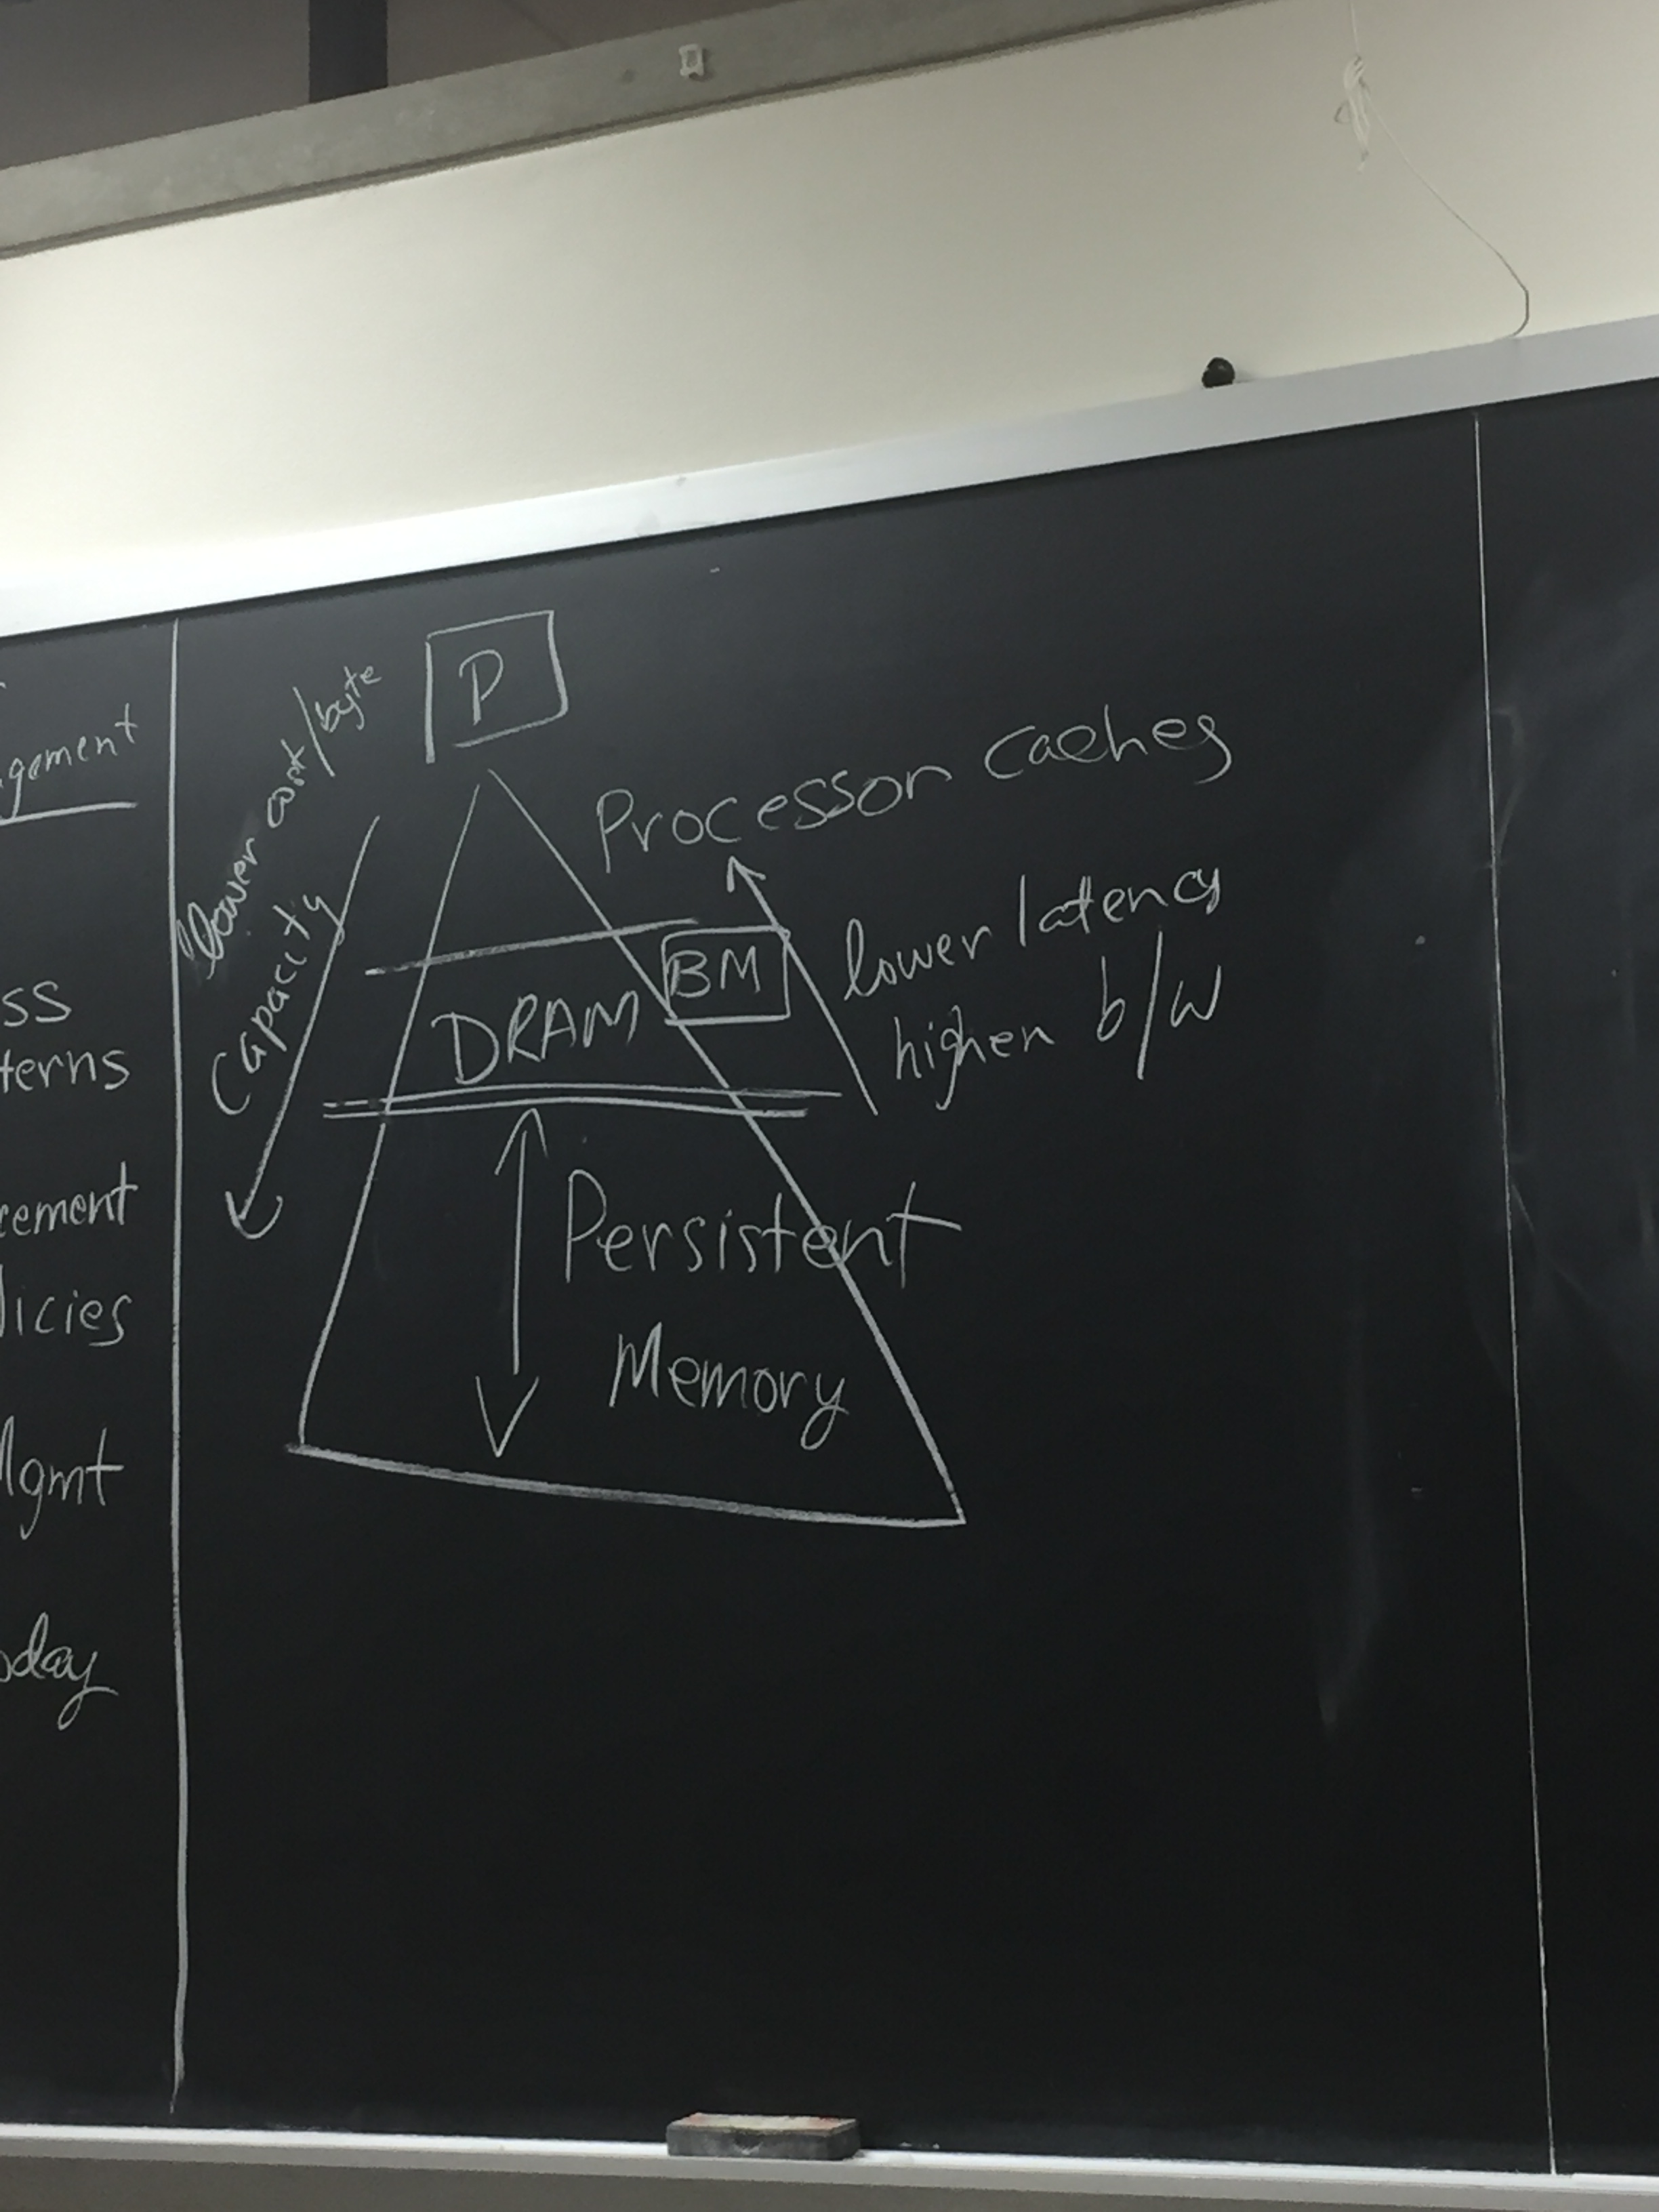 gement
ss
terns
cement
licies
Mgmt
oday
P
lower cost/byte
Capacity
Processor caches
BM
lower latency
higher b/w
DRAM
Persistent
Memory